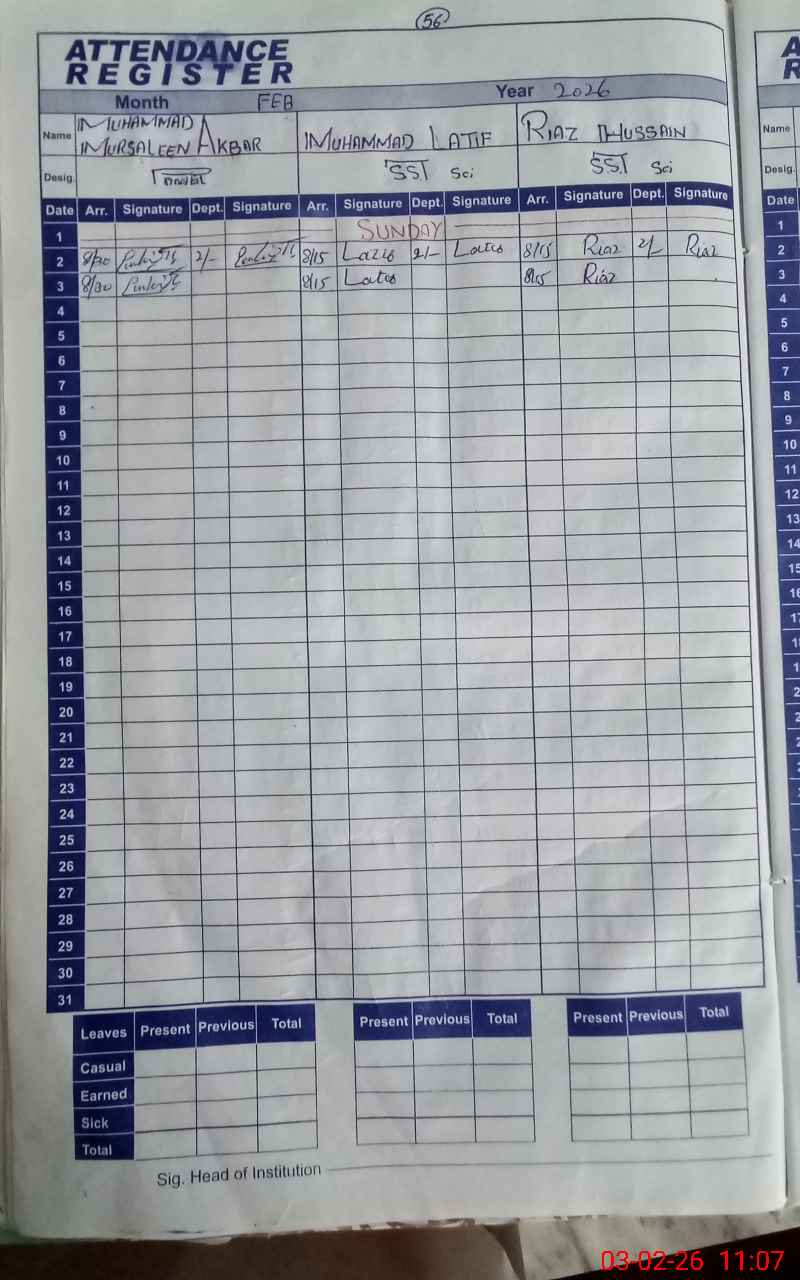 56
ATTENDANCE
REGISTER
Month FEB Year 2026
Name MUHAMMAD MURSALEEN AKBAR MUHAMMAD LATIF RIAZ HUSSAIN
Desig. SST Sci SST Sci
Date Arr. Signature Dept. Signature Arr. Signature Dept. Signature Arr. Signature Dept. Signature
1 SUNDAY
2 8/30 2/- 8/15 Latif 2/- Latif 8/15 Riaz 2/- Riaz
3 8/30 8/15 Latif 8/15 Riaz
4
5
6
7
8
9
10
11
12
13
14
15
16
17
18
19
20
21
22
23
24
25
26
27
28
29
30
31
Leaves Present Previous Total Present Previous Total Present Previous Total
Casual
Earned
Sick
Total
Sig. Head of Institution
03-02-26 11:07